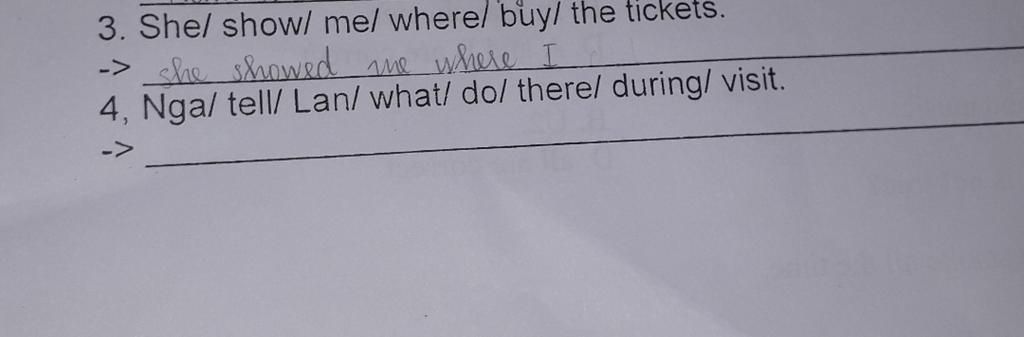 3. She/ show/ me/ where/ buy/ the tickets.
-> she showed me where I
4, Nga/ tell/ Lan/ what/ do/ there/ during/ visit.
->